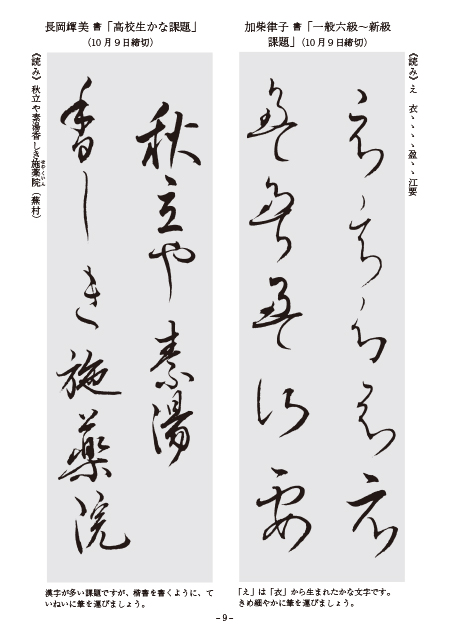 加柴律子 書「一般六級～新級
課題」(10月9日締切)
《読み》え 衣ヽヽヽヽ盈ヽヽ江要
衣衣衣衣衣
盈盈盈江要
「え」は「衣」から生まれたかな文字です。
きめ細やかに筆を運びましょう。
長岡輝美 書「高校生かな課題」
(10月9日締切)
秋立や素湯
香しき施薬院
《読み》秋立や素湯香しき施薬院(蕪村)
せやくいん
漢字が多い課題ですが、楷書を書くように、て
いねいに筆を運びましょう。
－9－